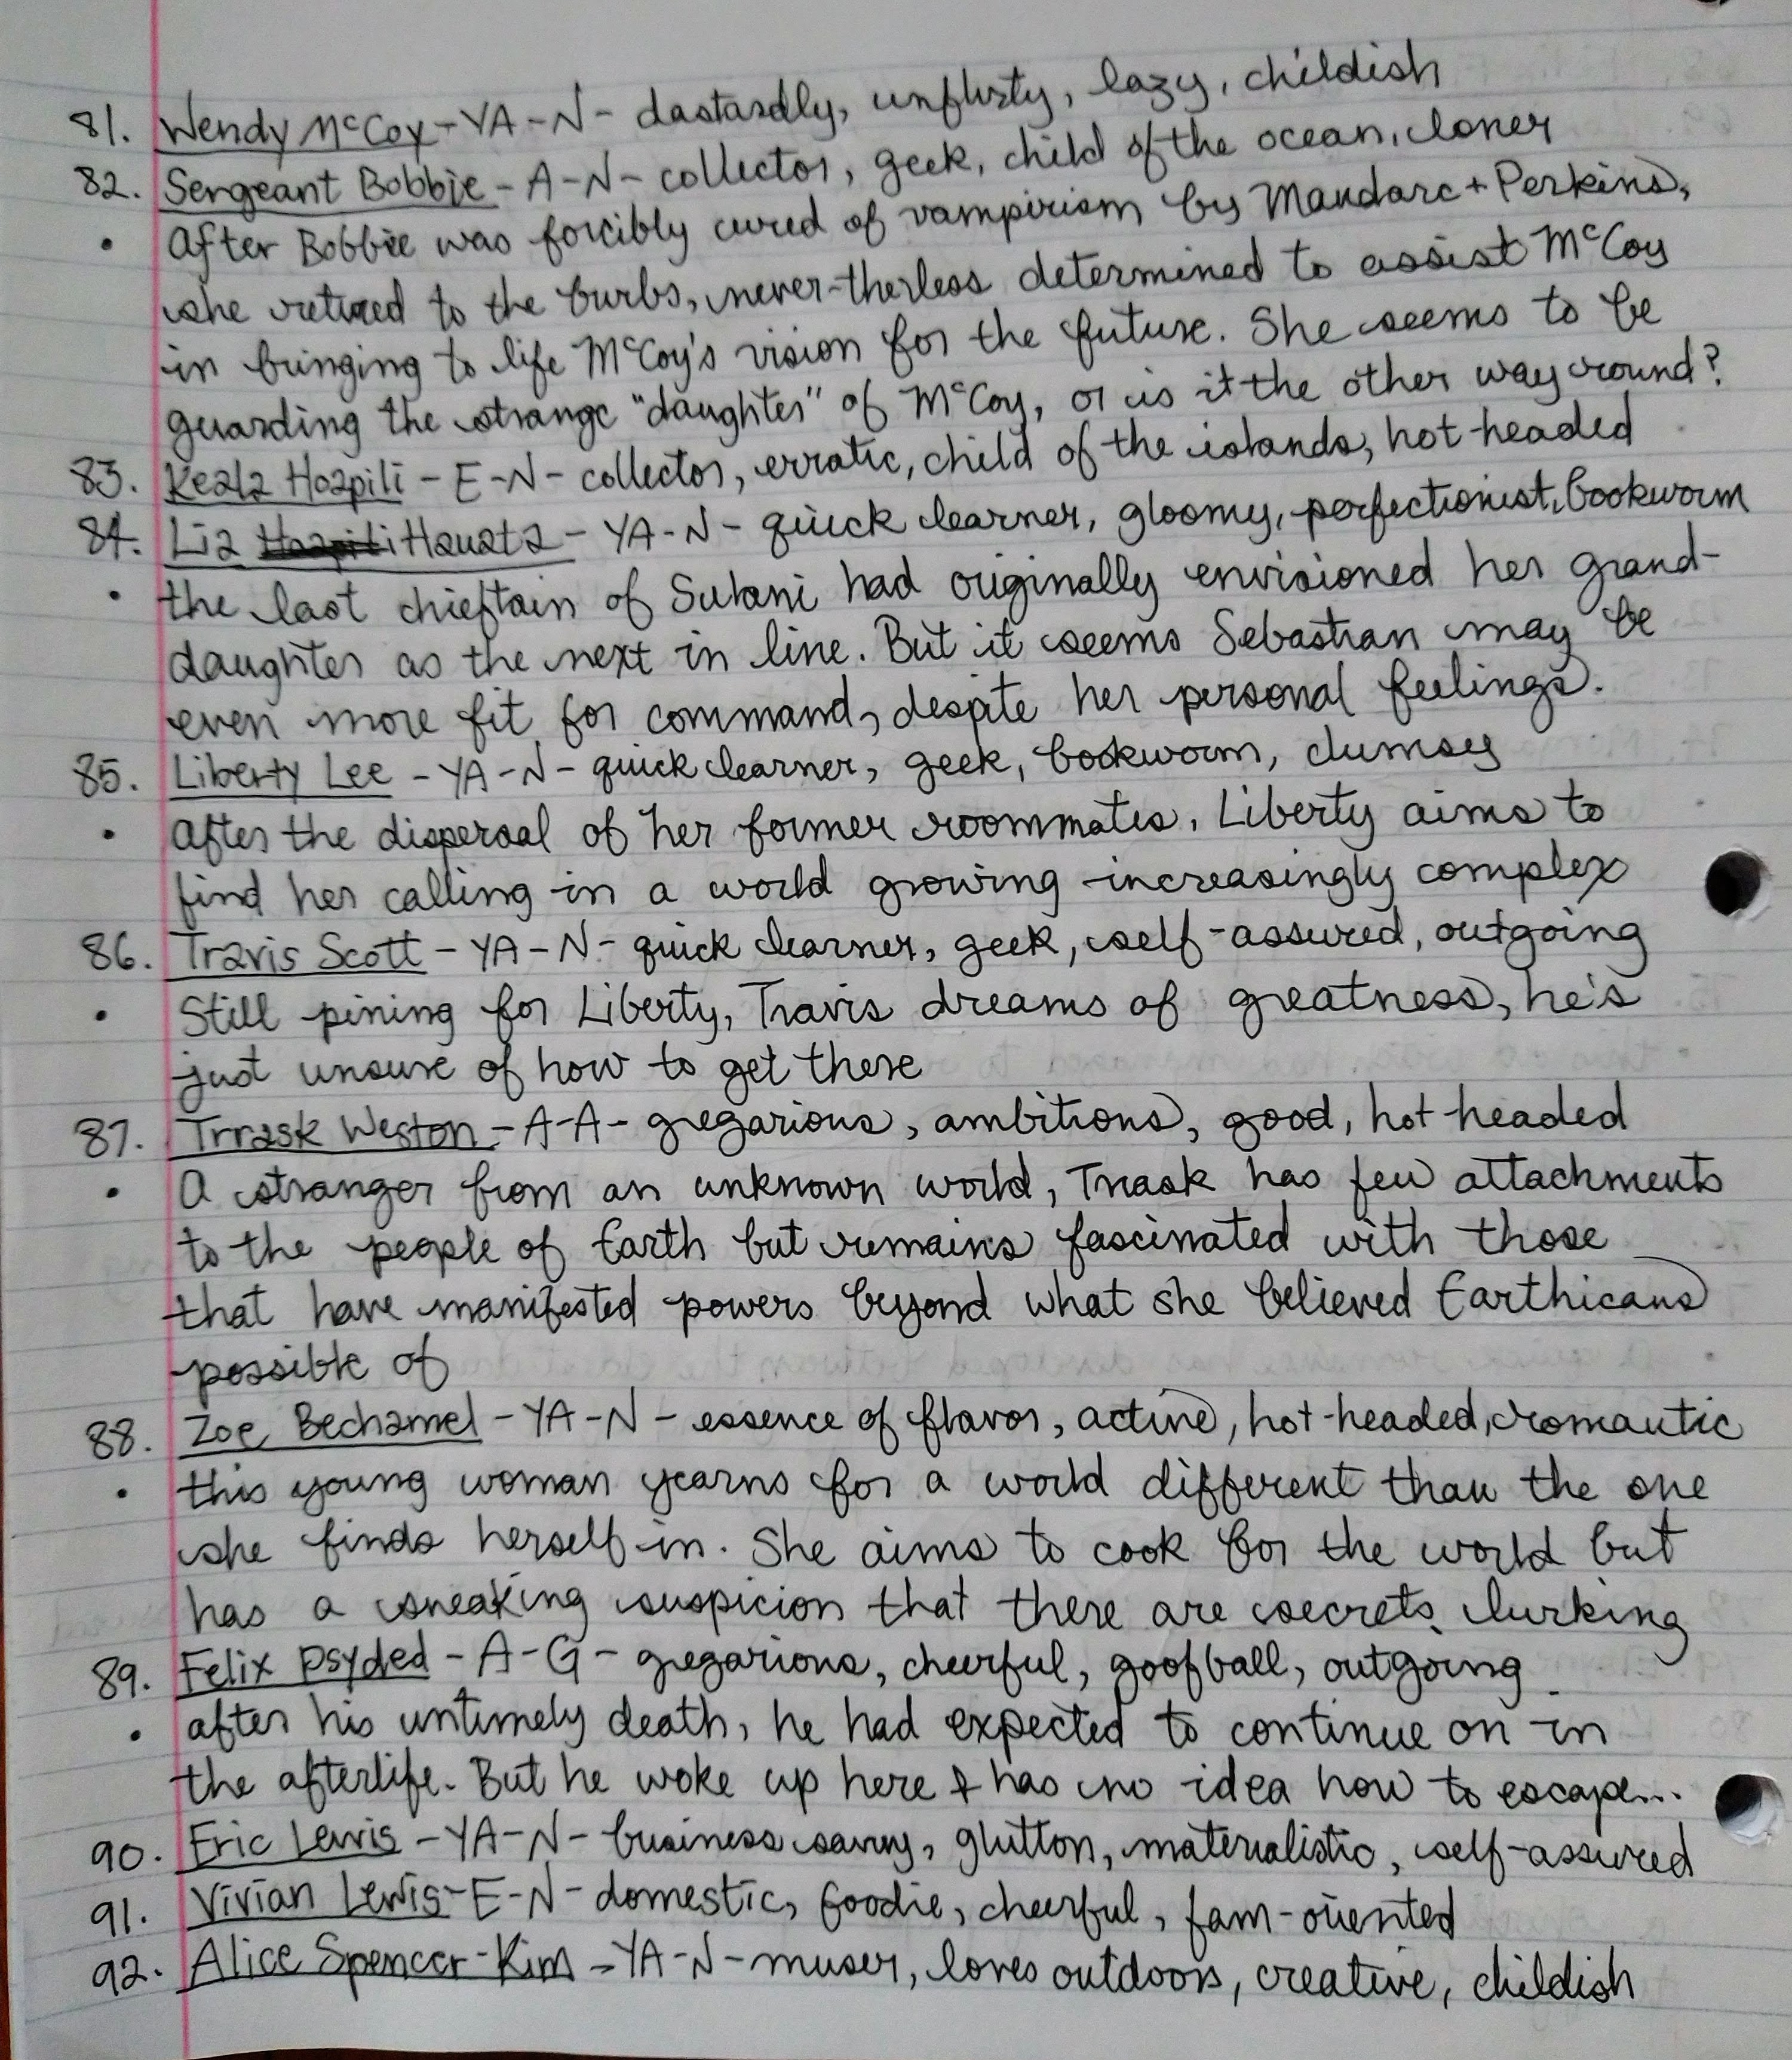 81. Wendy McCoy - YA - N - dastardly, unflirty, lazy, childish
82. Sergeant Bobbie - A - N - collector, geek, child of the ocean, loner
• After Bobbie was forcibly cured of vampirism by Mandarc + Perkins,
she retired to the burbs, never-therless determined to assist McCoy
in bringing to life McCoy's vision for the future. She seems to be
guarding the strange "daughter" of McCoy, or is it the other way round?
83. Keala Hoapili - E - N - collector, erratic, child of the islands, hot-headed
84. Lia Hauata - YA - N - quick learner, gloomy, perfectionist, bookworm
• the last chieftain of Sulani had originally envisioned her grand-
daughter as the next in line. But it seems Sebastian may be
even more fit for command, despite her personal feelings.
85. Liberty Lee - YA - N - quick learner, geek, bookworm, clumsey
• After the dispersal of her former roommates, Liberty aims to
find her calling in a world growing increasingly complex
86. Travis Scott - YA - N - quick learner, geek, self-assured, outgoing
• Still pining for Liberty, Travis dreams of greatness, he's
just unsure of how to get there
87. Trrask Weston - A - A - gregarious, ambitious, good, hot-headed
• A stranger from an unknown world, Trrask has few attachments
to the people of Earth but remains fascinated with those
that have manifested powers beyond what she believed Earthicans
possible of
88. Zoe Bechamel - YA - N - essence of flavor, active, hot-headed, romantic
• this young woman yearns for a world different than the one
she finds herself in. She aims to cook for the world but
has a sneaking suspicion that there are secrets lurking
89. Felix Psyded - A - G - gregarious, cheerful, goofball, outgoing
• after his untimely death, he had expected to continue on in
the afterlife. But he woke up here & has no idea how to escape...
90. Eric Lewis - YA - N - business savvy, glutton, materialistic, self-assured
91. Vivian Lewis - E - N - domestic, foodie, cheerful, fam-oriented
92. Alice Spencer-Kim - YA - N - muser, loves outdoors, creative, childish